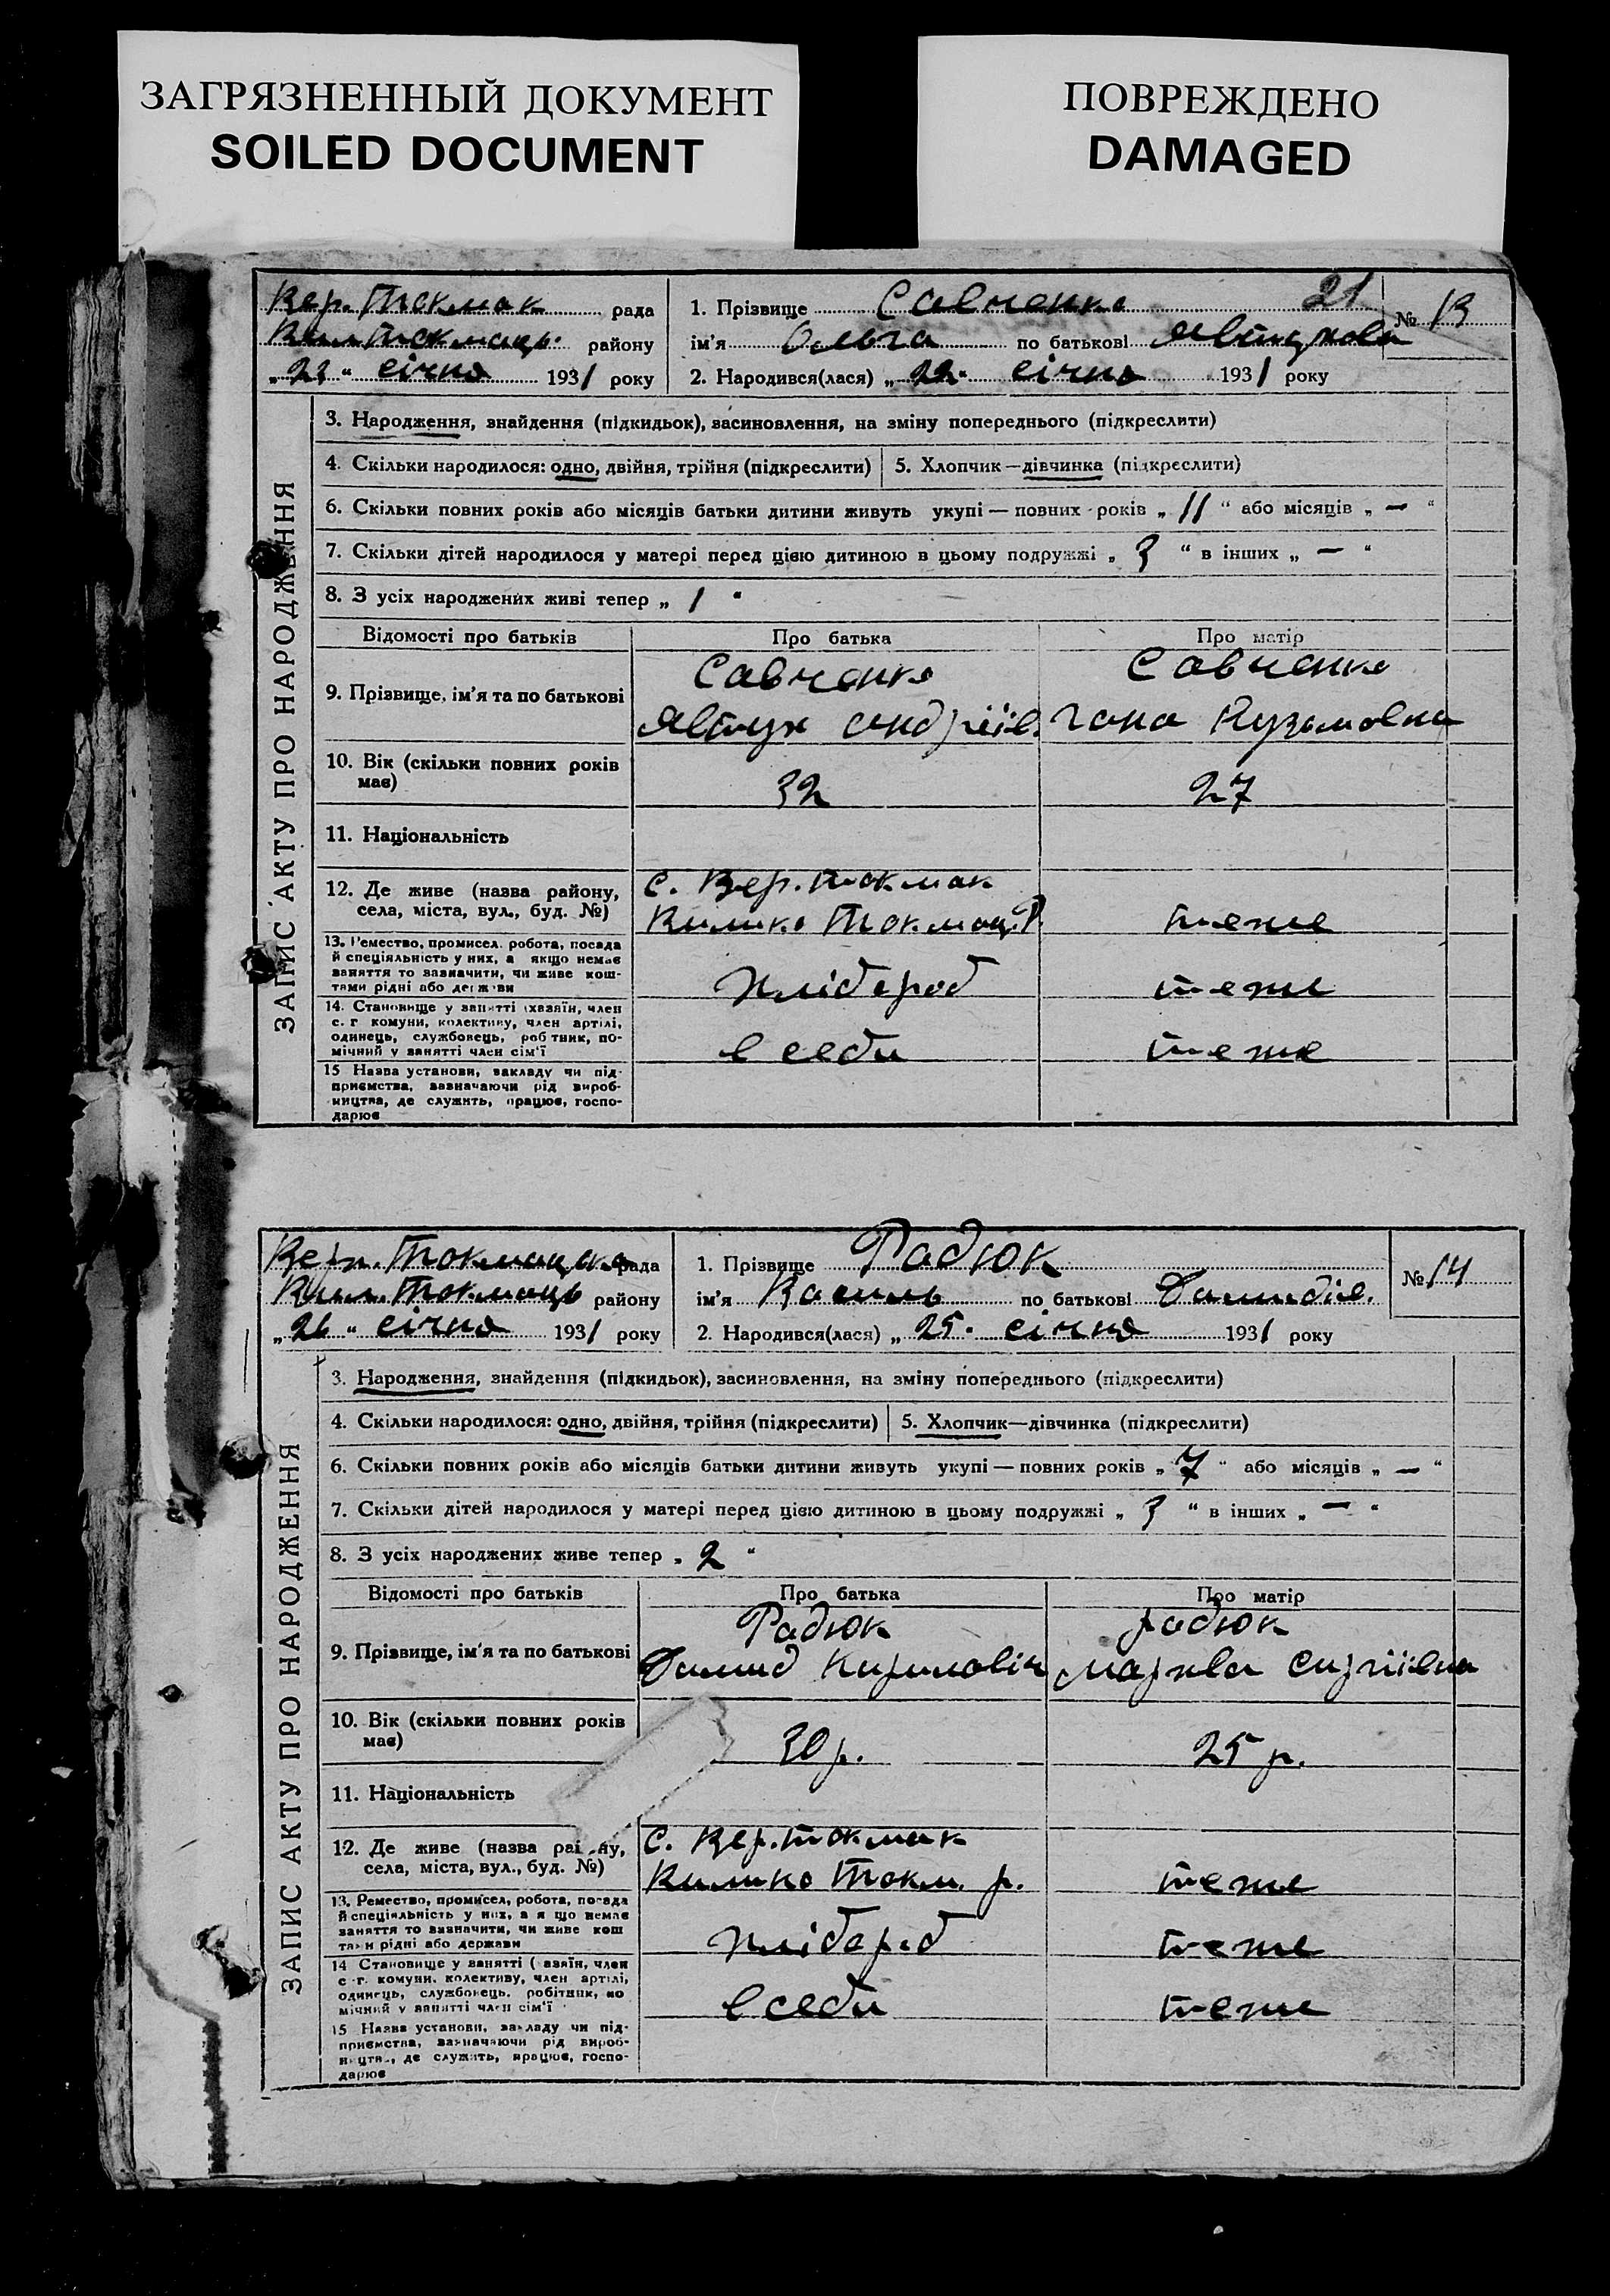 ЗАГРЯЗНЕННЫЙ ДОКУМЕНТ
SOILED DOCUMENT
ПОВРЕЖДЕНО
DAMAGED
ЗАПИС АКТУ ПРО НАРОДЖЕННЯ
Вер. Токмак рада
району
„ “ січня 1931 року
1. Прізвище Савченко 21
№ 13
ім'я Ольга по батькові Явтухова
2. Народився(лася) „22“ січня 1931 року
3. Народження, знайдення (підкидьок), засиновлення, на зміну попереднього (підкреслити)
4. Скільки народилося: одно, двійня, трійня (підкреслити) 5. Хлопчик—дівчинка (підкреслити)
6. Скільки повних років або місяців батьки дитини живуть укупі — повних років „ 11 “ або місяців „ — “
7. Скільки дітей народилося у матері перед цією дитиною в цьому подружжі „ 3 “ в інших „ — “
8. З усіх народжених живі тепер „ 1 “
Відомості про батьків Про батька Про матір
9. Прізвище, ім'я та по батькові
Савченко Савченко
Явтух Андріїв. Гана Кузьмовна
10. Вік (скільки повних років має) 32 27
11. Національність
12. Де живе (назва району, села, міста, вул., буд. №)
с. Вер. Токмак
теже
13. Ремество, промисел, робота, посада
й спеціяльність у них, а якщо немає
заняття то зазначити, чи живе кош-
тами рідні або держави
хлібороб теже
14. Становище у занятті (хазяїн, член
с. г. комуни, колективу, член артілі,
одинець, службовець, робітник, по-
мічний у занятті член сім'ї
в себе теже
15 Назва установи, закладу чи під-
приємства, зазначаючи рід вироб-
ництва, де служить, працює, госпо-
дарює
ЗАПИС АКТУ ПРО НАРОДЖЕННЯ
Вер. Токмацька рада
району
„26“ січня 1931 року
1. Прізвище Радюк
№ 14
ім'я Василь по батькові Даمидів.
2. Народився(лася) „25“ січня 1931 року
3. Народження, знайдення (підкидьок), засиновлення, на зміну попереднього (підкреслити)
4. Скільки народилося: одно, двійня, трійня (підкреслити) 5. Хлопчик—дівчинка (підкреслити)
6. Скільки повних років або місяців батьки дитини живуть укупі — повних років „ 7 “ або місяців „ — “
7. Скільки дітей народилося у матері перед цією дитиною в цьому подружжі „ 3 “ в інших „ — “
8. З усіх народжених живе тепер „ 2 “
Відомості про батьків Про батька Про матір
9. Прізвище, ім'я та по батькові
Радюк Радюк
Кирилович
10. Вік (скільки повних років має) 30 р. 25 р.
11. Національність
12. Де живе (назва району, села, міста, вул., буд. №)
с. Вер. Токмак
теже
13. Ремество, промисел, робота, посада
й спеціяльність у них, а якщо немає
заняття то зазначити, чи живе кош
тами рідні або держави
хлібороб теже
14 Становище у занятті (хазяїн, член
с. г. комуни, колективу, член артілі,
одинець, службовець, робітник, по
мічний у занятті член сім'ї
в себе теже
15 Назва установи, закладу чи під-
приємства, зазначаючи рід вироб-
ництва, де служить, працює, госпо-
дарює